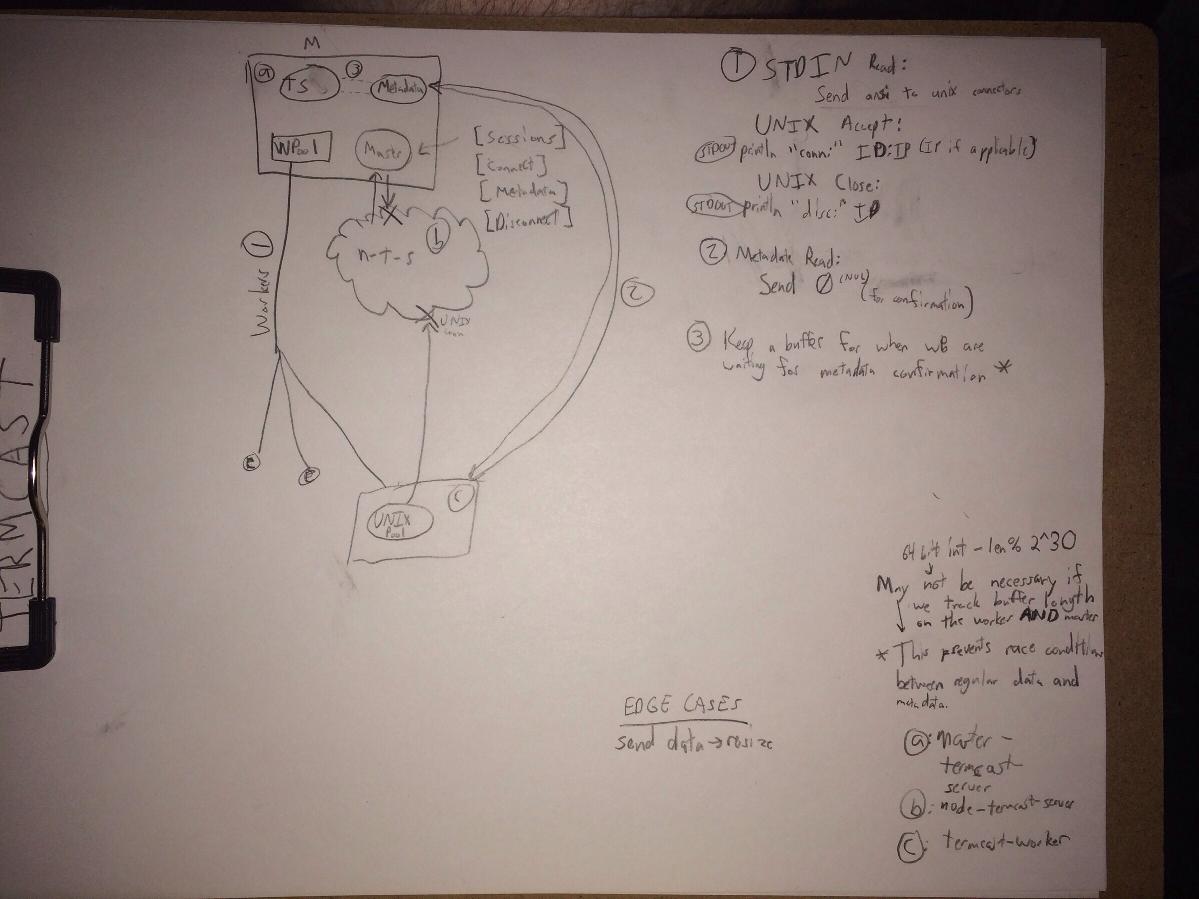 M
a TS 3 Metadata
WPool Mastr
[Sessions]
[Connect]
[Metadata]
[Disconnect]
n-t-s b
Workers 1
UNIX
conn
2
c
c
UNIX
Pool
c
TERMCAST
1 STDIN Read:
Send ansi to unix connectors
UNIX Accept:
STDOUT println "conn:" ID:IP (IP if applicable)
UNIX Close:
STDOUT println "disc:" ID
2 Metadata Read:
Send Ø (NUL) (for confirmation)
3 Keep a buffer for when we are
waiting for metadata confirmation *
64 bit int - len % 2^30
May not be necessary if
we track buffer length
on the worker AND master
* This prevents race conditions
between regular data and
metadata.
EDGE CASES
send data → resize
a: master-
termcast
server
b: node-termcast-server
c: termcast-worker